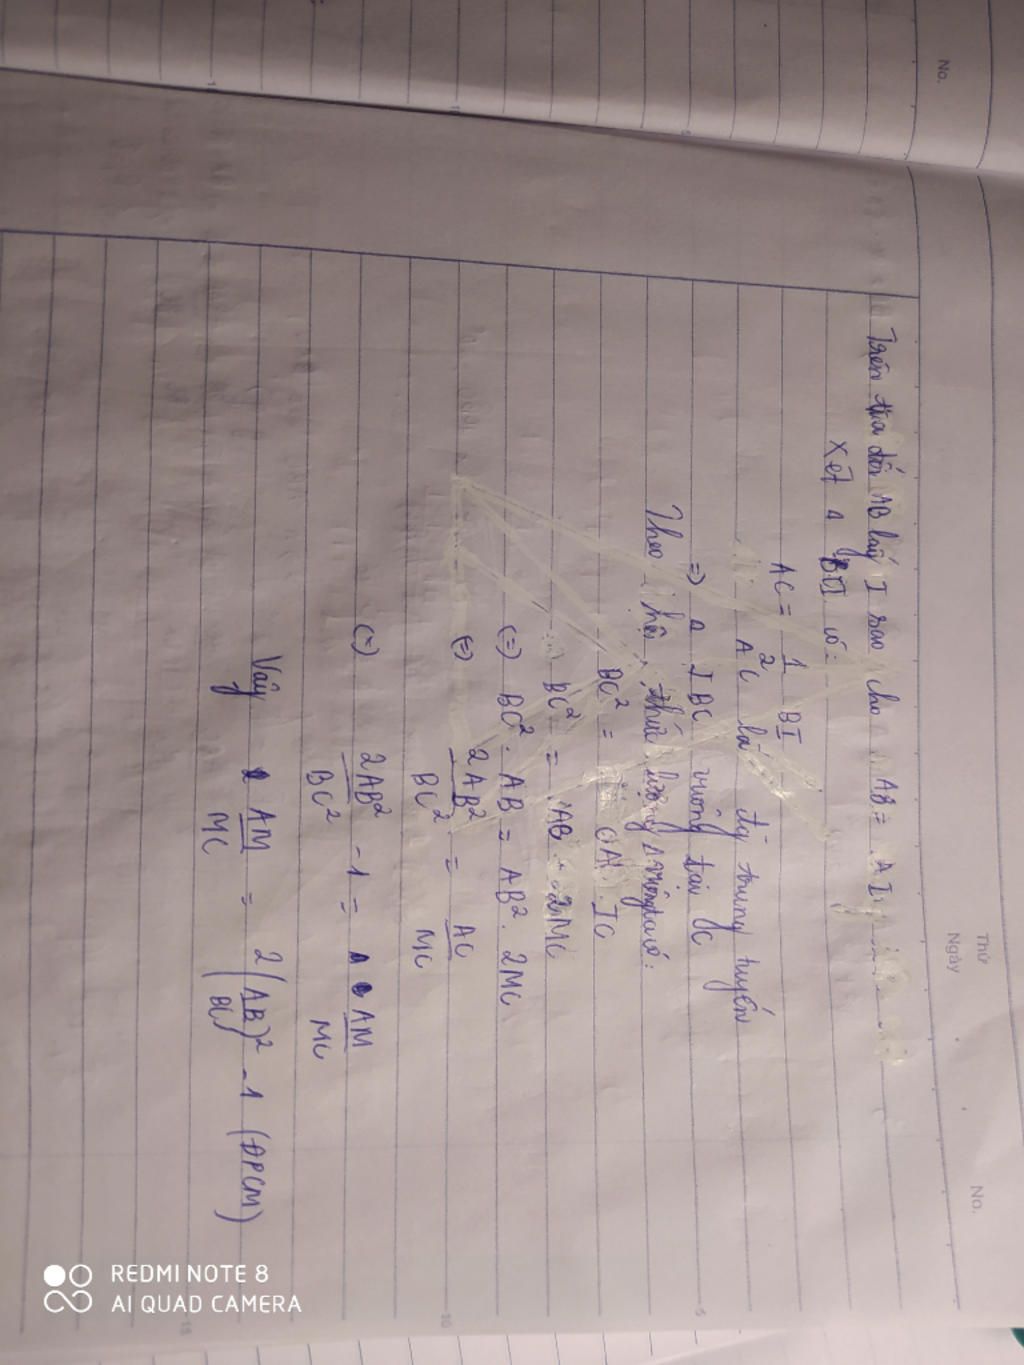 No.
Thứ
Ngày
No.
Trên tia đối AB lấy I sao cho AB = AI
Xét Δ BCI có:
AC = 1/2 BI
AC là đg trung tuyến
=> Δ IBC vuông tại C
Theo hệ thức lượng Δ vuông ta có:
BC² = IC
BC² = AB . 2MC
(=) BC² . AB = AB² . 2MC
(=) 2AB²/BC² = AC/MC
(=) 2AB²/BC² - 1 = AM/MC
Vậy AM/MC = 2(AB/BC)² - 1 (ĐPCM)
5
10
15
REDMI NOTE 8
AI QUAD CAMERA